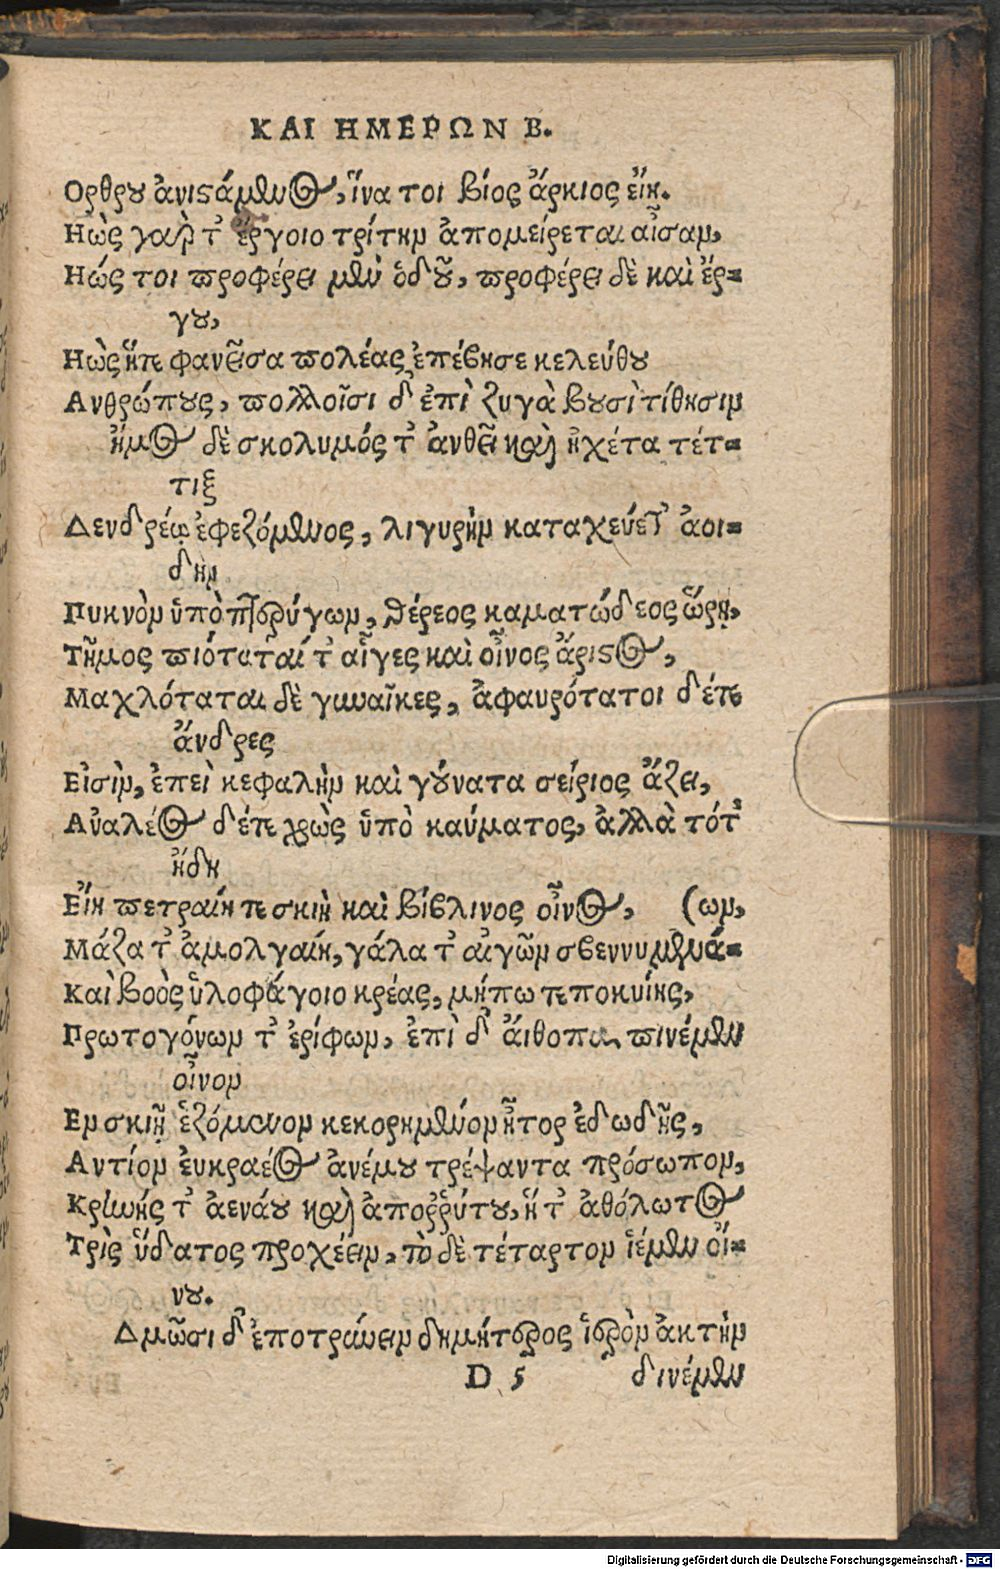 ΚΑΙ ΗΜΕΡΩΝ Β.
Ορθρου ἀνιστάμενος, ἵνα τοι βίος ἄρκιος εἴη.
Ηὼς γαρ τ' ἔργοιο τρίτην ἀπομείρεται αἶσαν,
Ηώς τοι προφέρει μὲν ὁδοῦ, προφέρει δὲ καὶ ἔρ-
γου,
Ηὼς ἥτε φανεῖσα πολέας ἐπέβησε κελεύθου
Ανθρώπους, πολλοῖσι δ' ἐπὶ ζυγὰ βουσὶ τίθησιν
ἤμος δὲ σκολυμός τ' ἀνθεῖ καὶ ἠχέτα τέτ-
τιξ
Δενδρέῳ ἐφεζόμενος, λιγυρὴν καταχεύετ' ἀοι-
δην
Πυκνὸν ὑπὸ πτερύγων, θέρεος καματώδεος ὥρῃ,
Τῆμος πιόταταί τ' αἶγες καὶ οἶνος ἄριστος,
Μαχλόταται δὲ γυναῖκες, ἀφαυρότατοι δέ τε
ἄνδρες
Εἰσὶν, ἐπεὶ κεφαλὴν καὶ γούνατα σείριος ἄζει,
Αὐαλέος δέ τε χρὼς ὑπὸ καύματος, ἀλλὰ τότ'
ἤδη
Εἴη πετραίη τε σκιὴ καὶ βίβλινος οἶνος, (ων,
Μάζα τ' ἀμολγαίη, γάλα τ' αἰγῶν σβεννυμενά-
Καὶ βοὸς ὑλοφάγοιο κρέας, μήπω τεποκυίης,
Πρωτογόνων τ' ἐρίφων, ἐπὶ δ' ἄιθοπα πινέμεν
οἶνον
Εν σκιῇ ἑζόμενον κεκορημένον ἦτορ ἐδωδῆς,
Αντίον ἐυκραέος ἀνέμου τρέψαντα πρόσωπον,
Κρήνης τ' ἀενάου καὶ ἀποῤῥύτου, ἥ τ' ἀθόλωτος
Τρὶς ὕδατος προχέειν, τὸ δὲ τέταρτον ἱέμεν οἴ-
νου.
Δμῶσι δ' ἐποτρύνειν δημήτερος ἱερὸν ἀκτὴν
D 5 δινέμεν
Digitalisierung gefördert durch die Deutsche Forschungsgemeinschaft - DFG